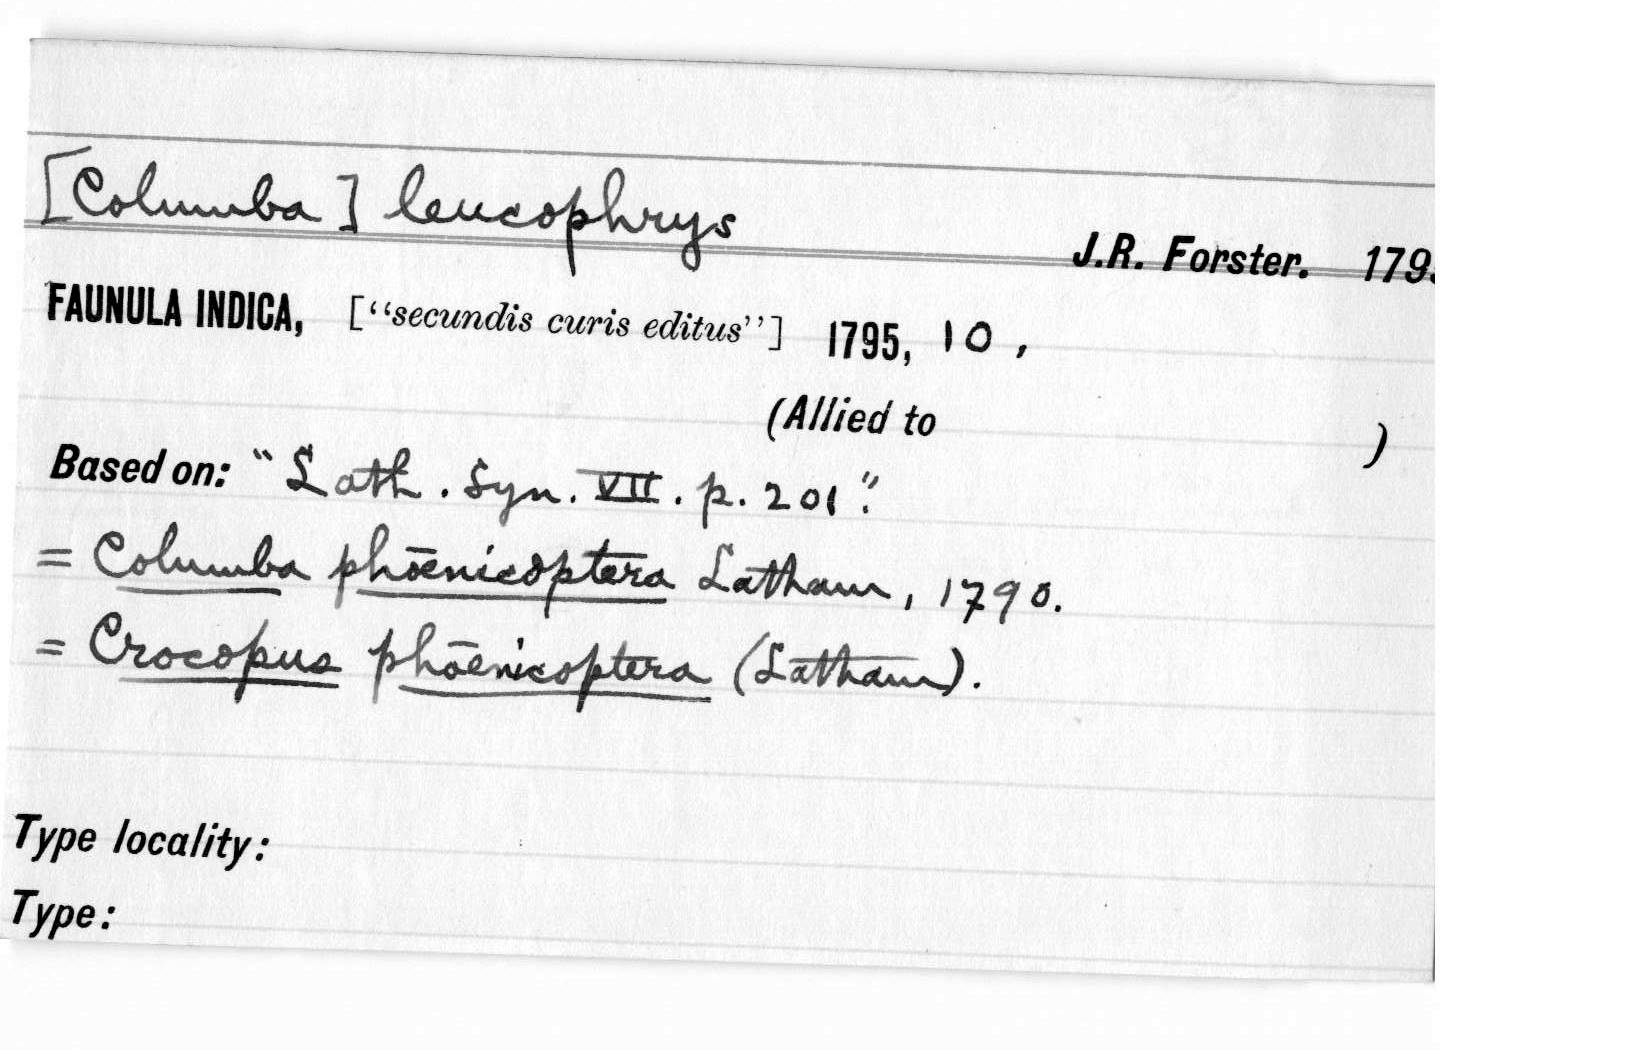 [Columba] leucophrys
J.R. Forster. 179
FAUNULA INDICA, ["secundis curis editus"] 1795, 10,
(Allied to )
Based on: "Lath. Syn. VII. p. 201".
= Columba phœnicoptera Latham, 1790.
= Crocopus phœnicoptera (Latham).
Type locality:
Type: